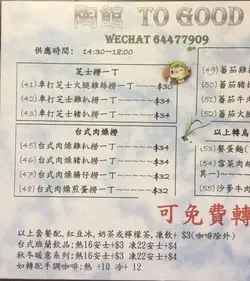 陶館 TO GOOD
WECHAT 64477909
供應時間: 14:30~18:00
芝士撈一丁
(41) 車打芝士火腿雞絲撈一丁~~~$30
(42) 車打芝士雞扒撈一丁~~~~~$34
(43) 車打芝士豬扒撈一丁~~~~~$34
台式肉燥撈
(45) 台式肉燥雞扒撈一丁~~~~~$34
(46) 台式肉燥豬扒撈一丁~~~~~$34
(47) 台式肉燥腸仔撈一丁~~~~~$32
(48) 台式肉燥煎蛋撈一丁~~~~~$32
(49) 蕃茄雞
(50) 蕃茄豬
(51) 蕃茄
(52) 蕃茄
以上轉烏
(53) 餐蛋麵(
(54) 雪菜肉絲
其一)
(55) 沙爹牛
可免費轉
以上套餐配,紅豆冰,奶茶或檸檬茶,凍飲+ $3(咖啡除外)
台式班蘭飲品:熱16安士+$3 凍22安士+$4
秋冬暖意系列:熱16安士+$3 凍22安士+$4
如轉配手調咖啡:熱 +10 冷+ 12